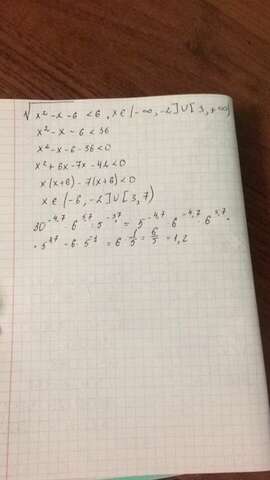 √x² - x - 6 < 6, x ∈ (-∞, -2] ∪ [3, +∞)
x² - x - 6 < 36
x² - x - 6 - 36 < 0
x² + 6x - 7x - 42 < 0
x(x+6) - 7(x+6) < 0
x ∈ (-6, -2] ∪ [3, 7)
30^-4,7 · 6^5,7 : 5^-3,7 = 5^-4,7 · 6^-4,7 · 6^5,7 ·
· 5^3,7 = 6 · 5^-1 = 6 · 1/5 = 6/5 = 1,2